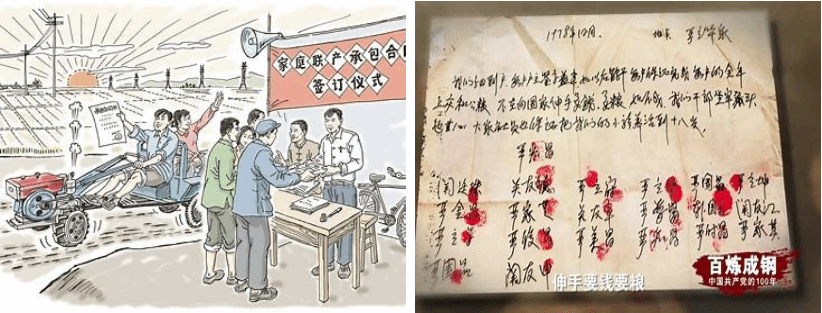 家庭联产承包合同
签订仪式
1978年12月. 地点 严立华家
我们分田到户 每户户主签字盖章 如以后能干 每户保证完成每户的全年
上交和公粮 不在向国家伸手要钱要粮 如不成 我们干部坐牢杀头
也甘心 大家社员也保证把我们的小孩养活到十八岁
严宏昌
关廷珠 关友德 严立富 严立华 严国昌 严立坤
严金昌 严家芝 关友章 严学昌 韩国云 关友江
严立学 严俊昌 严美昌 严付昌 严家其
严国品 关友申
伸手要钱要粮
百炼成钢
中国共产党的100年